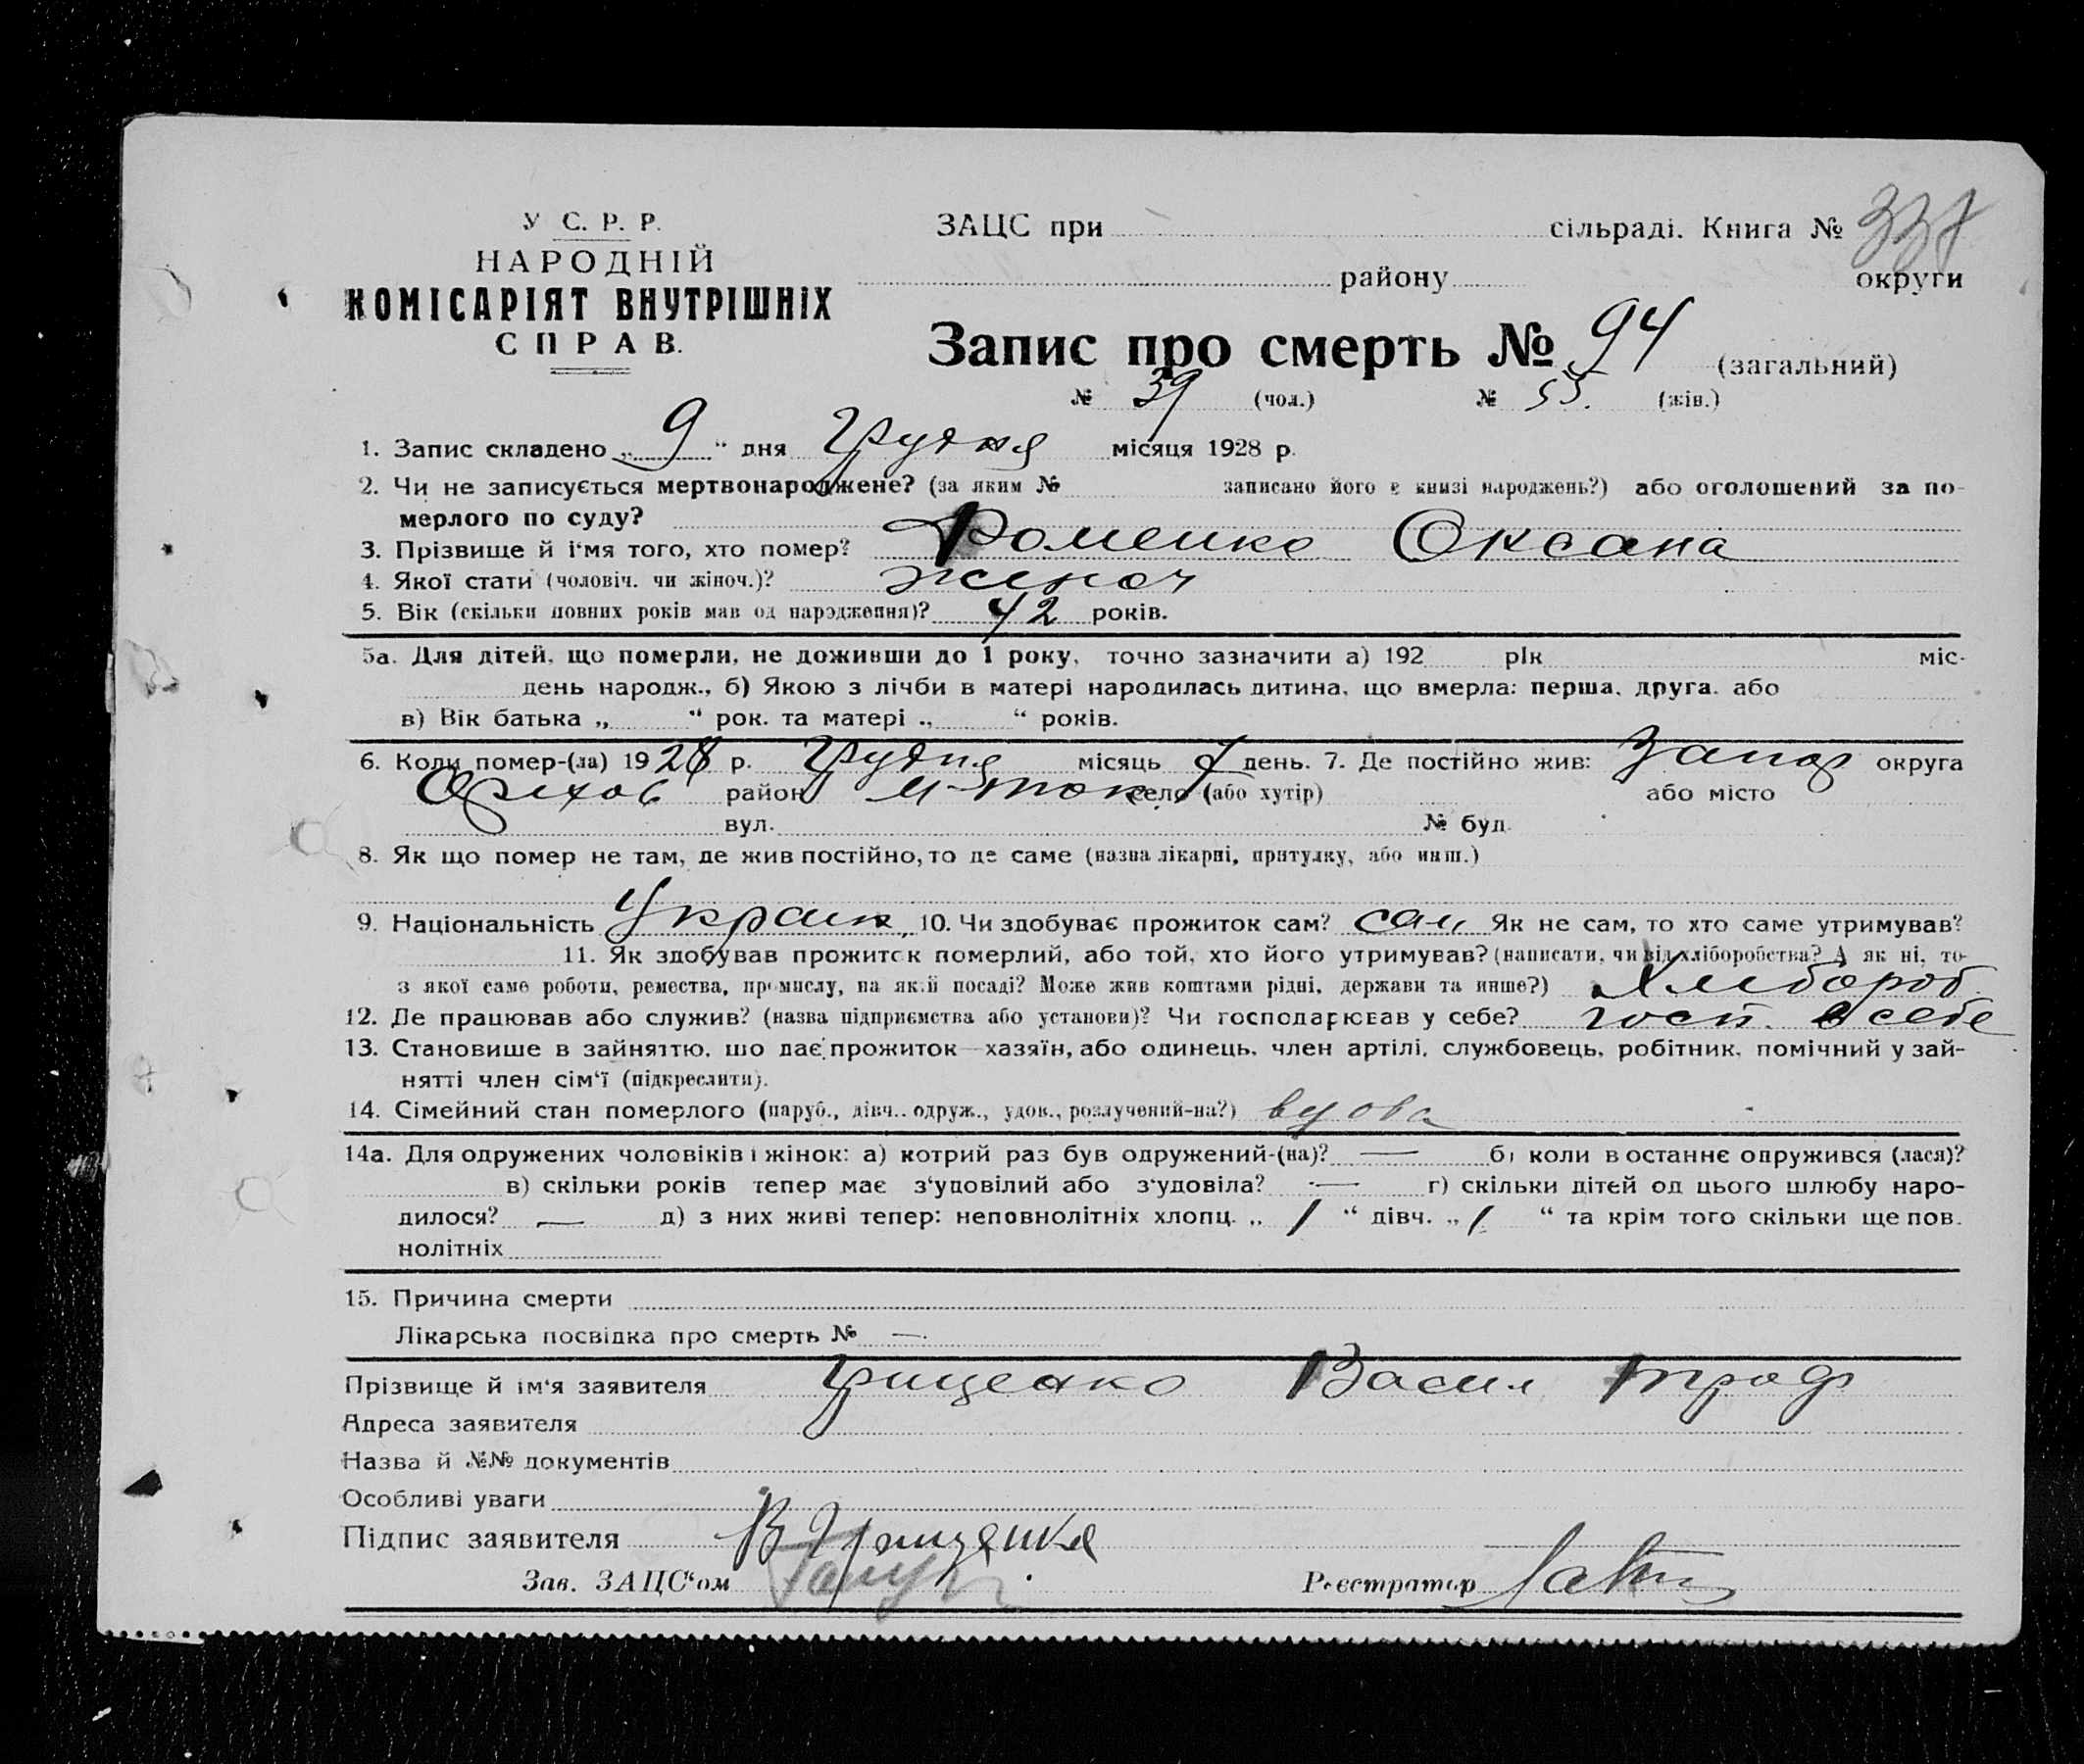 У С. Р. Р.
НАРОДНІЙ
КОМІСАРІЯТ ВНУТРІШНІХ
СПРАВ.
ЗАЦС при сільраді. Книга № 337
району округи
Запис про смерть № 94 (загальний)
№ 39 (чол.) № 55. (жін.)
1. Запис складено „9“ дня Грудня місяця 1928 р.
2. Чи не записується мертвонароджене? (за яким № записано його в книзі народжень?) або оголошений за по-
мерлого по суду?
3. Прізвище й і'мя того, хто помер? Фоменко Оксана
4. Якої стати (чоловіч. чи жіноч.)? жіноч
5. Вік (скільки повних років мав од народження)? 42 років.
5а. Для дітей, що померли, не доживши до 1 року, точно зазначити а) 192 рік міс.
день народж., б) Якою з лічби в матері народилась дитина, що вмерла: перша, друга, або
в) Вік батька „ “ рок. та матері „ “ років.
6. Коли помер-(ла) 1928 р. Грудня місяць 7 день. 7. Де постійно жив: Запор округа
Оріхов район М-Ток село (або хутір) або місто
вул. № буд.
8. Як що помер не там, де жив постійно, то де саме (назва лікарні, притулку, або инш.)
9. Національність Україн, 10. Чи здобуває прожиток сам? сам Як не сам, то хто саме утримував?
11. Як здобував прожиток померлий, або той, хто його утримував? (написати, чи від хліборобства? А як ні, то-
з якої саме роботи, ремества, промислу, на якій посаді? Може жив коштами рідні, держави та инше?) Хлібороб
12. Де працював або служив? (назва підприємства або установи)? Чи господарював у себе? госп. в себе
13. Становище в зайняттю, що дає прожиток—хазяїн, або одинець, член артілі, службовець, робітник, помічний у зай-
нятті член сім'ї (підкреслити).
14. Сімейний стан померлого (паруб., дівч., одруж., удов., розлучений-на?) вдова
14а. Для одружених чоловіків і жінок: а) котрий раз був одружений-(на)? — б) коли в останнє одружився (лася)?
в) скільки років тепер має з'уповілий або з'удовіла? — г) скільки дітей од цього шлюбу наро-
дилося? — д) з них живі тепер: неповнолітніх хлопц. „ / “ дівч. „ / “ та крім того скільки ще пов.
нолітніх
15. Причина смерти
Лікарська посвідка про смерть № —
Прізвище й ім'я заявителя Грищенко Васил Троф
Адреса заявителя
Назва й №№ документів
Особливі уваги
Підпис заявителя В Грищенко
Зав. ЗАЦС'ом
Реєстратор